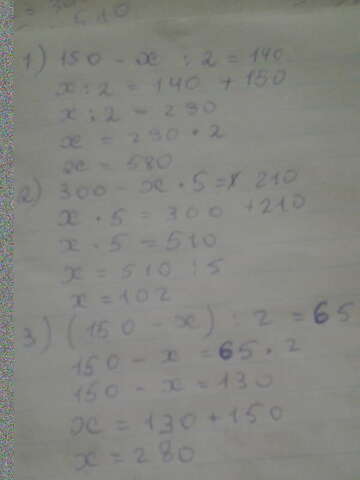 5 10
1) 150 - x : 2 = 140
x : 2 = 140 + 150
x : 2 = 290
x = 290 · 2
x = 580
2) 300 - x · 5 = 210
x · 5 = 300 + 210
x · 5 = 510
x = 510 : 5
x = 102
3) (150 - x) : 2 = 65
150 - x = 65 · 2
150 - x = 130
x = 130 + 150
x = 280